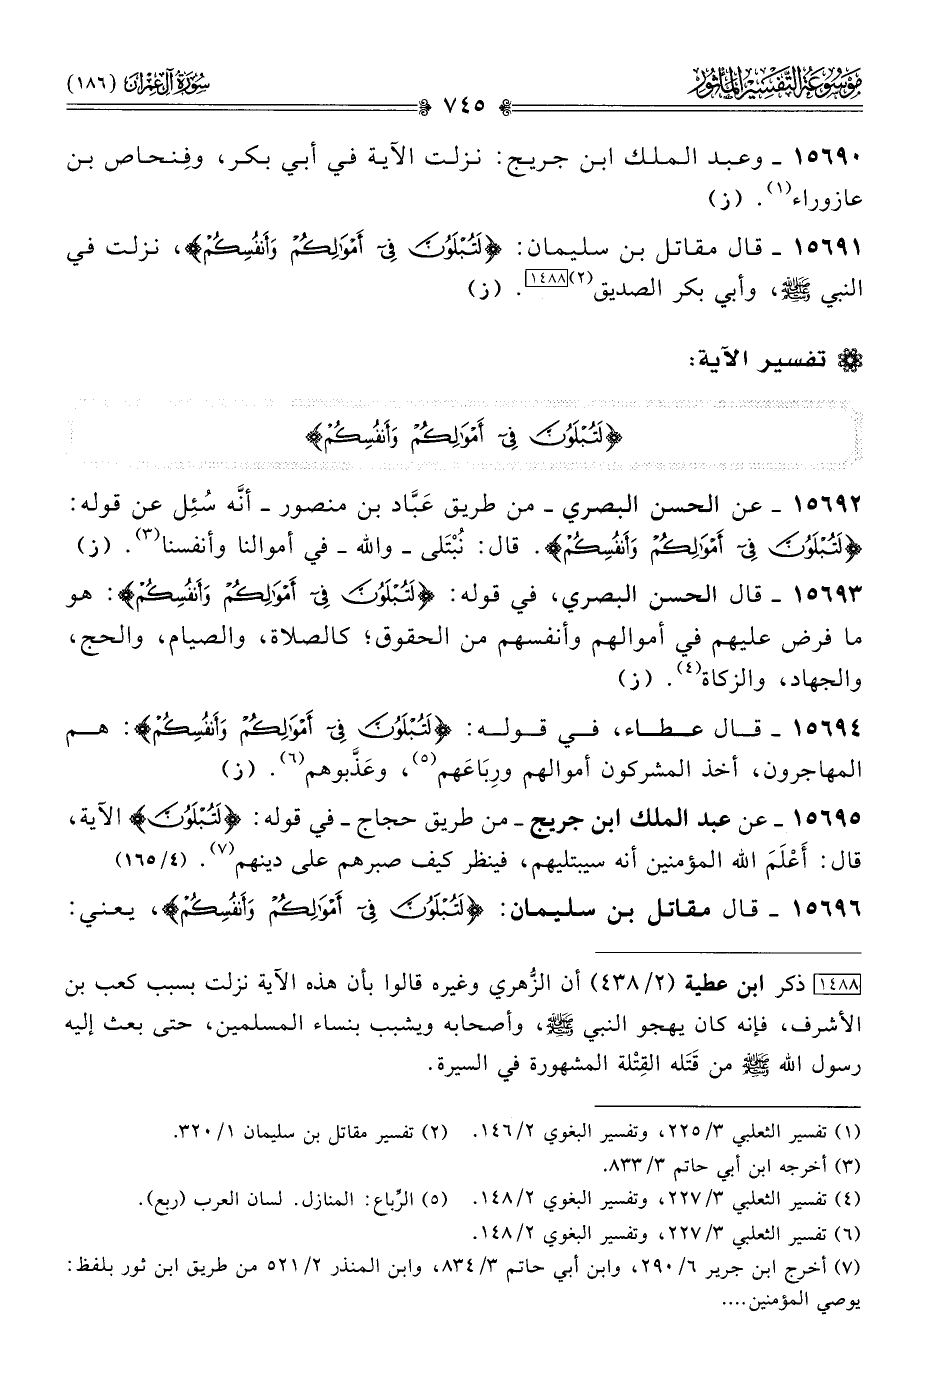 مَوْسُوعَةُ التَّفْسِيرِ المَأْثُور
سُورَةُ آلِ عِمْرَان (١٨٦)
٧٤٥
١٥٦٩٠ ـ وعبد الملك ابن جريج: نزلت الآية في أبي بكر، وفِنحاص بن
عازوراء(١). (ز)
١٥٦٩١ ـ قال مقاتل بن سليمان: ﴿لَتُبْلَوُنَّ فِىٓ أَمْوَٰلِكُمْ وَأَنفُسِكُمْ﴾، نزلت في
النبي ﷺ، وأبي بكر الصديق(٢)[١٤٨٨]. (ز)
تفسير الآية:
﴿لَتُبْلَوُنَّ فِىٓ أَمْوَٰلِكُمْ وَأَنفُسِكُمْ﴾
١٥٦٩٢ ـ عن الحسن البصري ـ من طريق عَبَّاد بن منصور ـ أنَّه سُئِل عن قوله:
﴿لَتُبْلَوُنَّ فِىٓ أَمْوَٰلِكُمْ وَأَنفُسِكُمْ﴾. قال: نُبْتَلى ـ والله ـ في أموالنا وأنفسنا(٣). (ز)
١٥٦٩٣ ـ قال الحسن البصري، في قوله: ﴿لَتُبْلَوُنَّ فِىٓ أَمْوَٰلِكُمْ وَأَنفُسِكُمْ﴾: هو
ما فرض عليهم في أموالهم وأنفسهم من الحقوق؛ كالصلاة، والصيام، والحج،
والجهاد، والزكاة(٤). (ز)
١٥٦٩٤ ـ قال عطاء، في قوله: ﴿لَتُبْلَوُنَّ فِىٓ أَمْوَٰلِكُمْ وَأَنفُسِكُمْ﴾: هم
المهاجرون، أخذ المشركون أموالهم ورِبَاعَهم(٥)، وعَذَّبوهم(٦). (ز)
١٥٦٩٥ ـ عن عبد الملك ابن جريج ـ من طريق حجاج ـ في قوله: ﴿لَتُبْلَوُنَّ﴾ الآية،
قال: أَعْلَمَ الله المؤمنين أنه سيبتليهم، فينظر كيف صبرهم على دينهم(٧). (٤/ ١٦٥)
١٥٦٩٦ ـ قال مقاتل بن سليمان: ﴿لَتُبْلَوُنَّ فِىٓ أَمْوَٰلِكُمْ وَأَنفُسِكُمْ﴾، يعني:
[١٤٨٨] ذكر ابن عطية (٢/ ٤٣٨) أن الزُّهري وغيره قالوا بأن هذه الآية نزلت بسبب كعب بن
الأشرف، فإنه كان يهجو النبي ﷺ، وأصحابه ويشبب بنساء المسلمين، حتى بعث إليه
رسول الله ﷺ من قَتَله القِتْلة المشهورة في السيرة.
(١) تفسير الثعلبي ٣/ ٢٢٥، وتفسير البغوي ٢/ ١٤٦. (٢) تفسير مقاتل بن سليمان ١/ ٣٢٠.
(٣) أخرجه ابن أبي حاتم ٣/ ٨٣٣.
(٤) تفسير الثعلبي ٣/ ٢٢٧، وتفسير البغوي ٢/ ١٤٨. (٥) الرِّباع: المنازل. لسان العرب (ربع).
(٦) تفسير الثعلبي ٣/ ٢٢٧، وتفسير البغوي ٢/ ١٤٨.
(٧) أخرج ابن جرير ٦/ ٢٩٠، وابن أبي حاتم ٣/ ٨٣٤، وابن المنذر ٢/ ٥٢١ من طريق ابن ثور بلفظ:
يوصي المؤمنين....